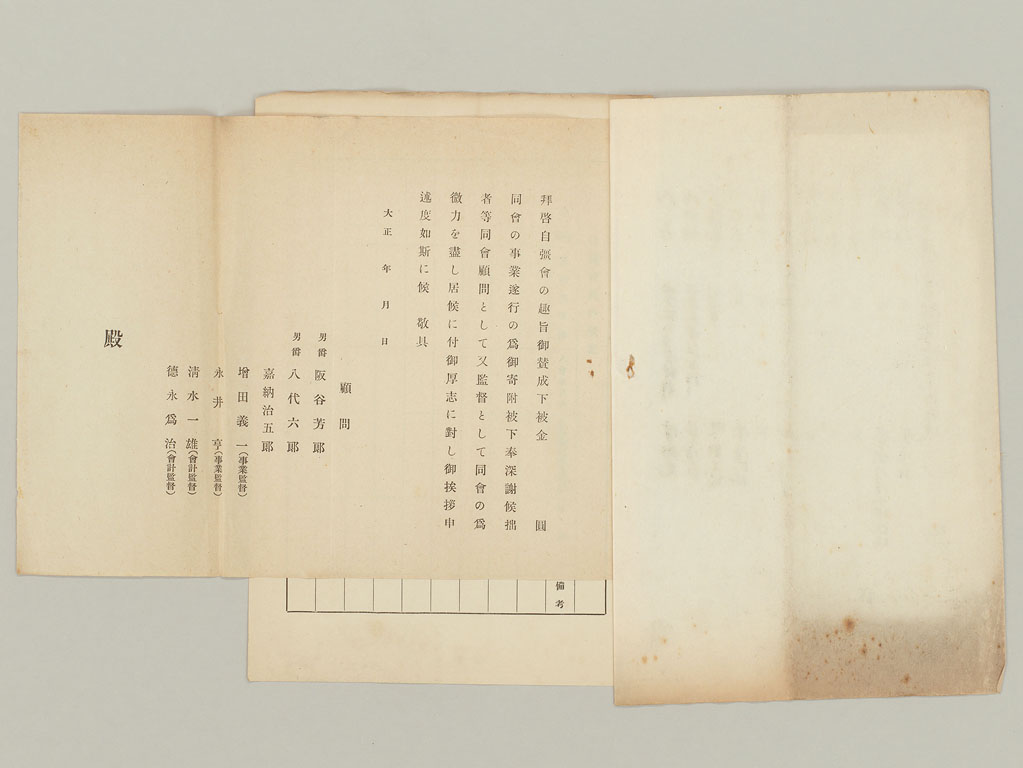 拜啓自彊會の趣旨御賛成下被金　圓
同會の事業遂行の爲御寄附被下奉深謝候拙
者等同會顧問として又監督として同會の爲
微力を盡し居候に付御厚志に對し御挨拶申
述度如斯に候　敬具
大正　年　月　日
顧問
男爵　阪谷芳郎
男爵　八代六郎
嘉納治五郎
增田義一（事業監督）
永井亨（事業監督）
清水一雄（會計監督）
德永爲治（會計監督）
殿
備考